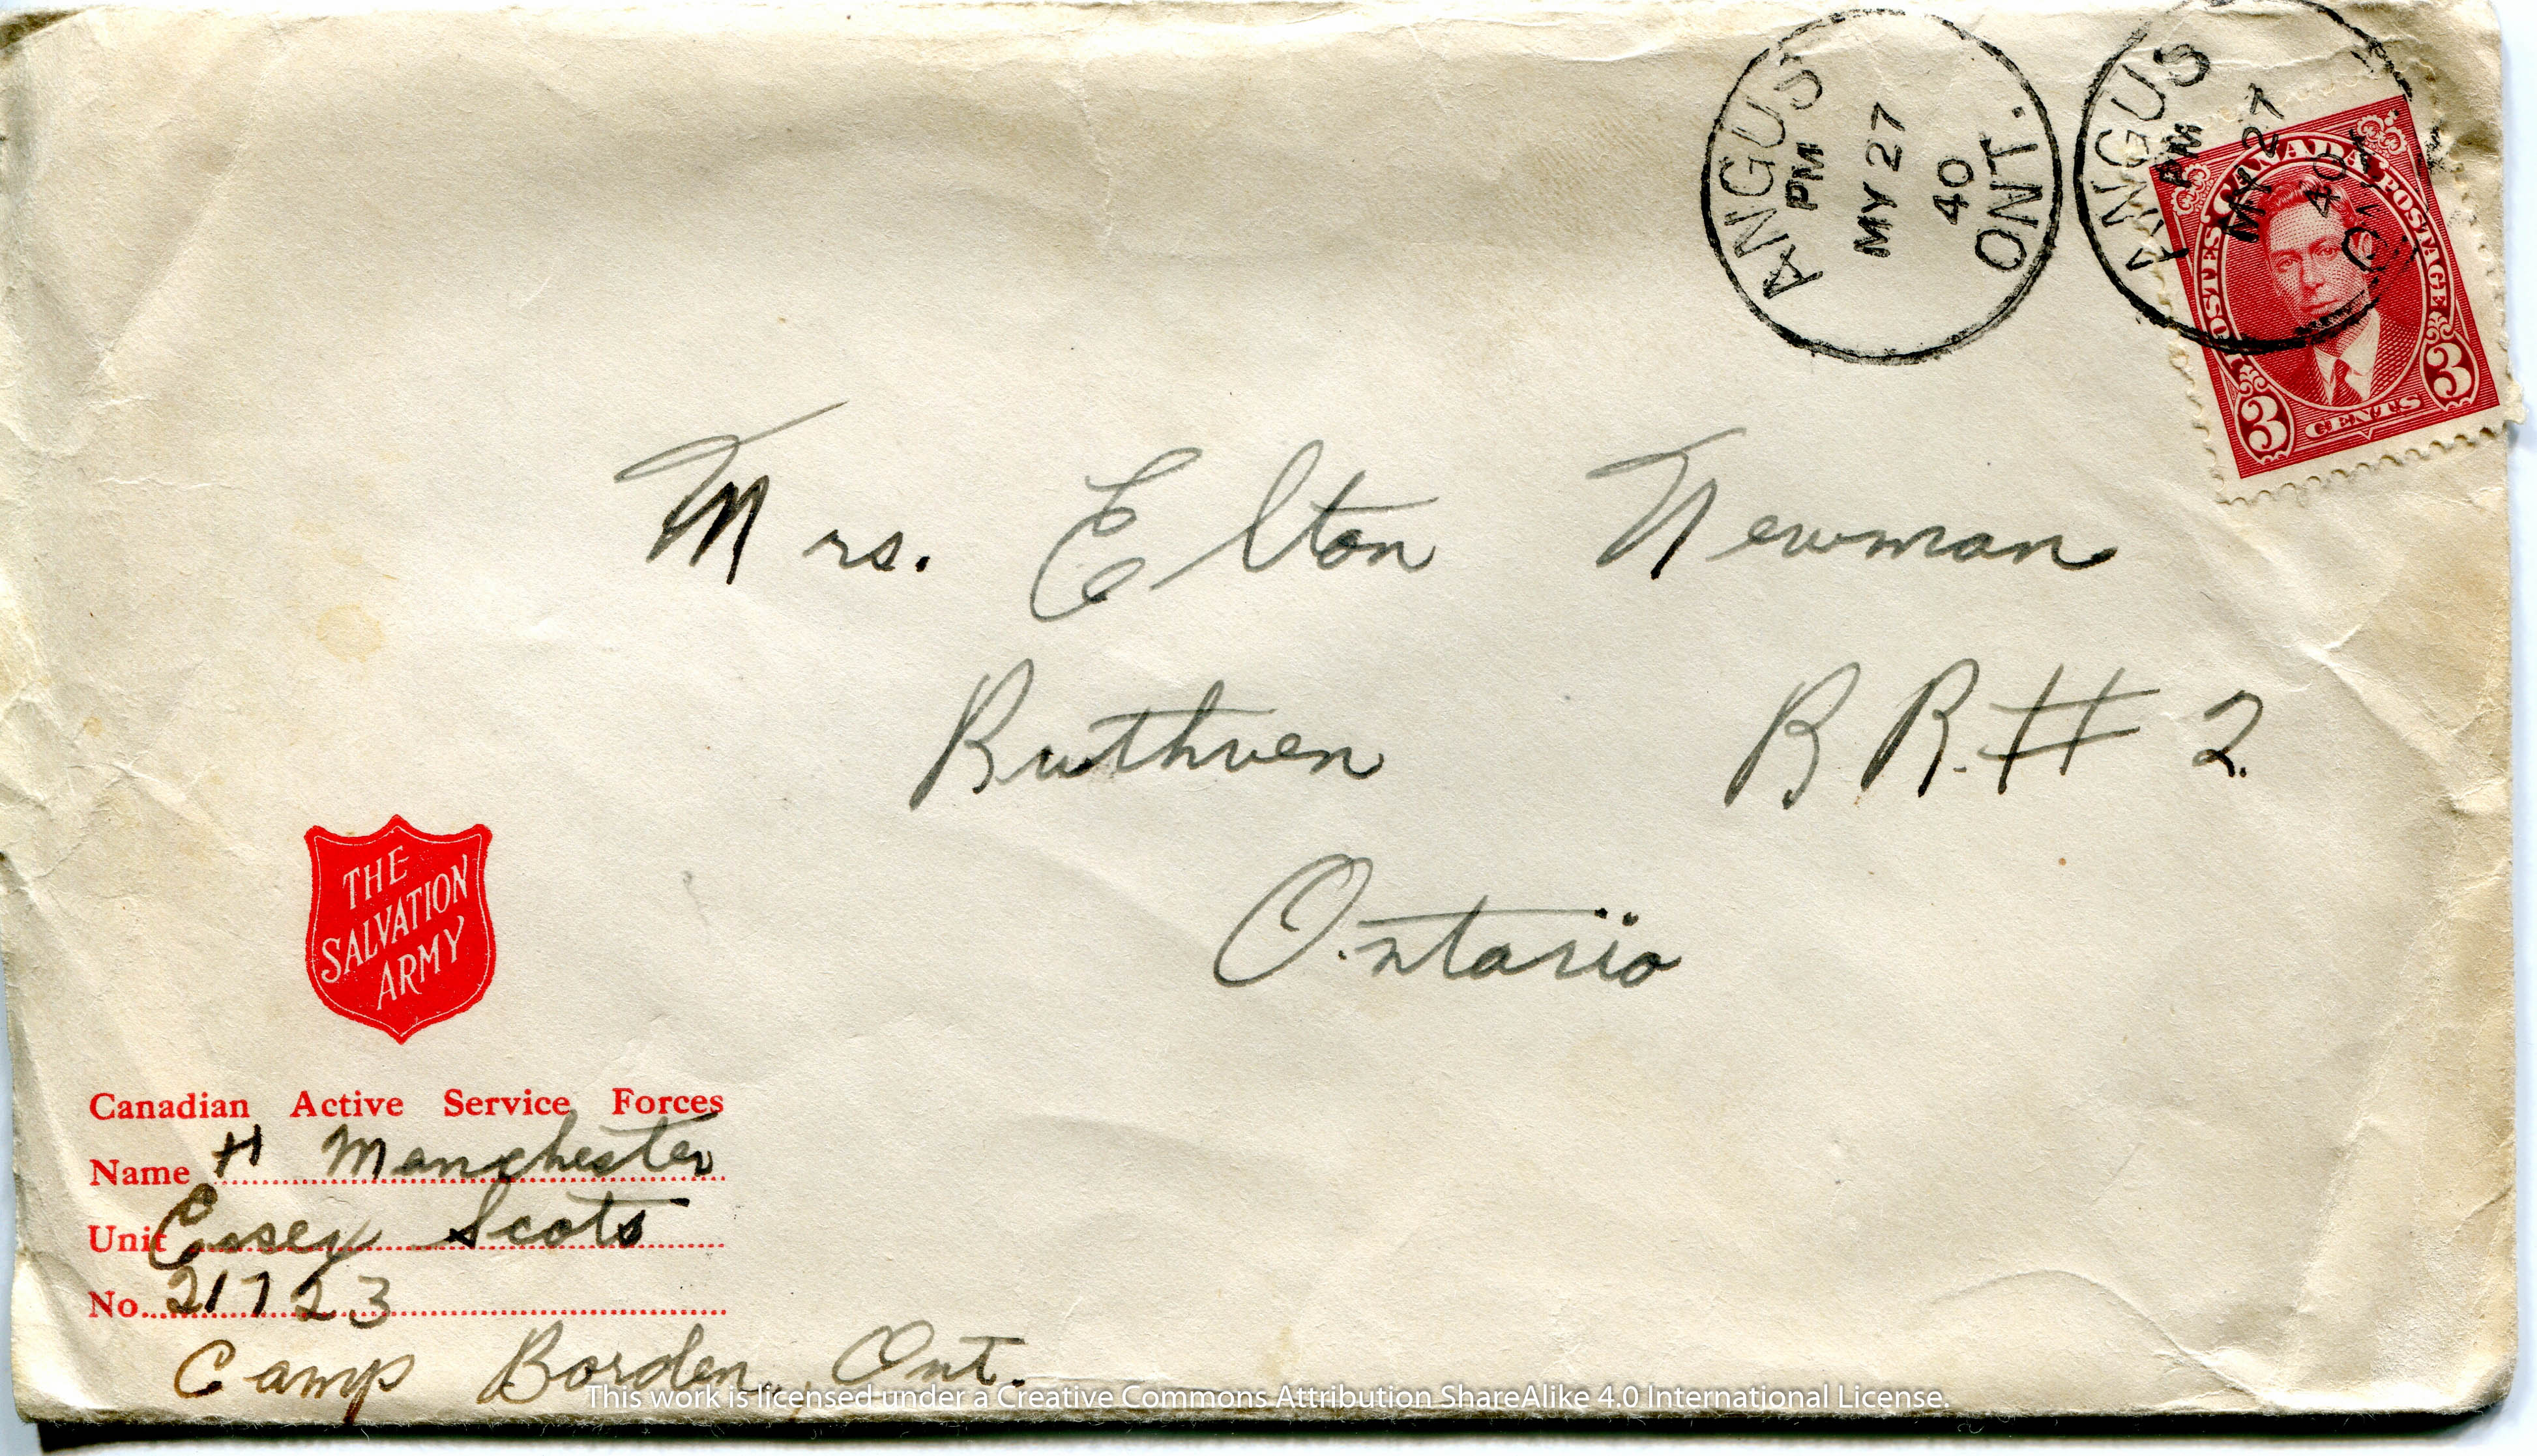 ANGUS
PM
MY 27
40
ONT.
ANGUS
PM
MY 27
40
ONT.
POSTES CANADA POSTAGE
3 CENTS 3
Mrs. Elton Newman
Ruthven R R. # 2.
Ontario
THE
SALVATION
ARMY
Canadian Active Service Forces
Name H Manchester
Unit Essex Scots
No. 21723
Camp Borden, Ont.
This work is licensed under a Creative Commons Attribution ShareAlike 4.0 International License.